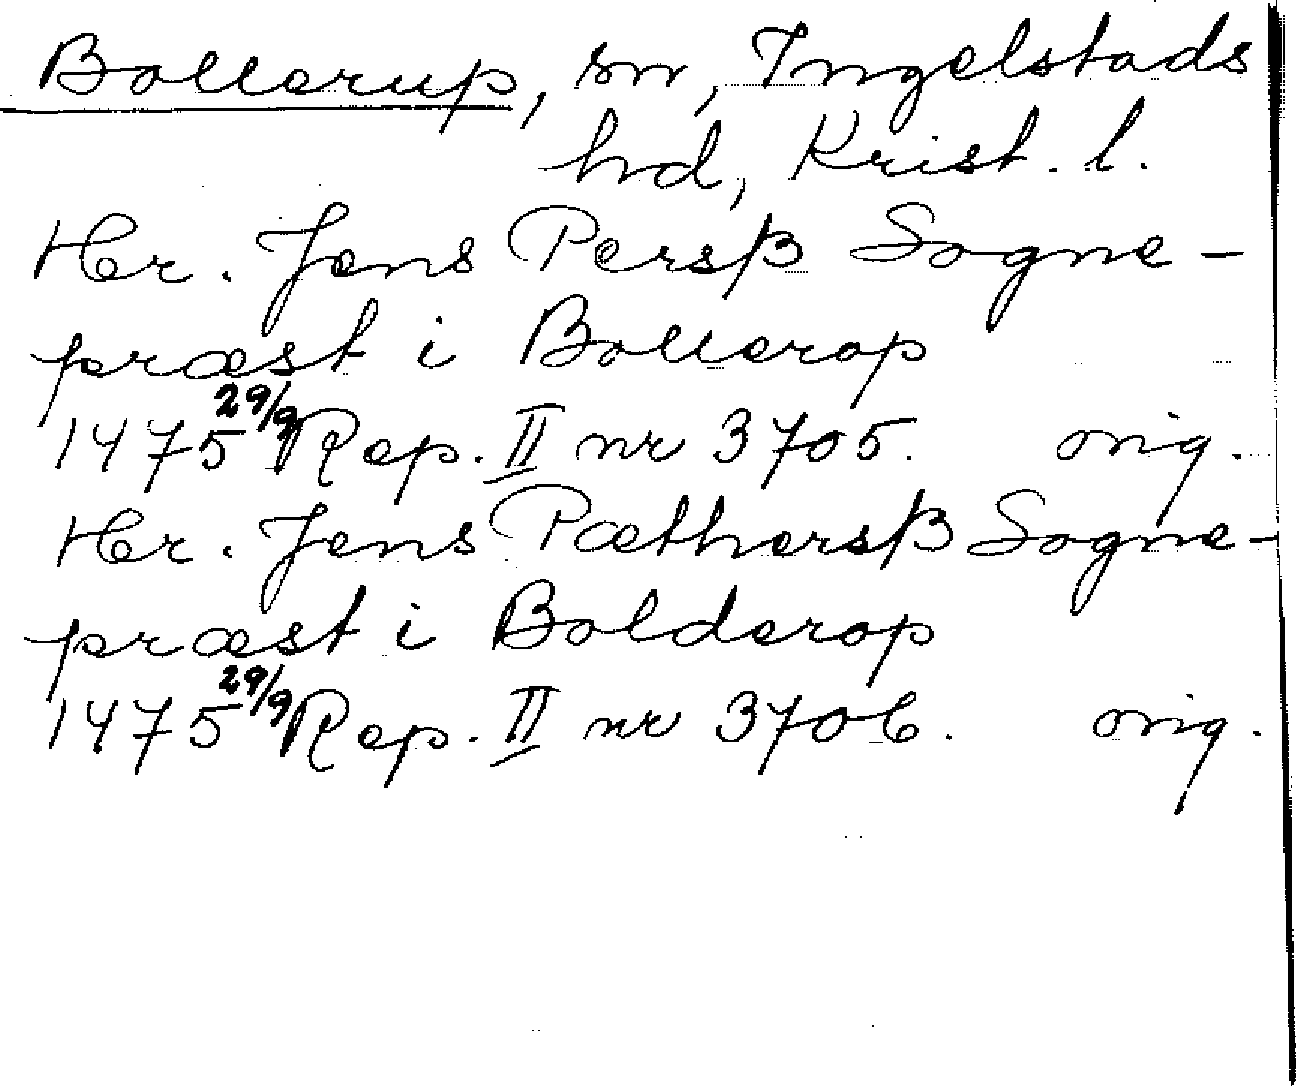 Bollerup, sn, Ingelstads
hd, Krist. l.
Her. Jens Persβ Sogne-
præst i Bollerop
1475 29/9 Rep. II nr 3705. orig.
Her. Jens Pæthersβ Sogne-
præst i Bolderop
1475 29/9 Rep. II nr 3706. orig.